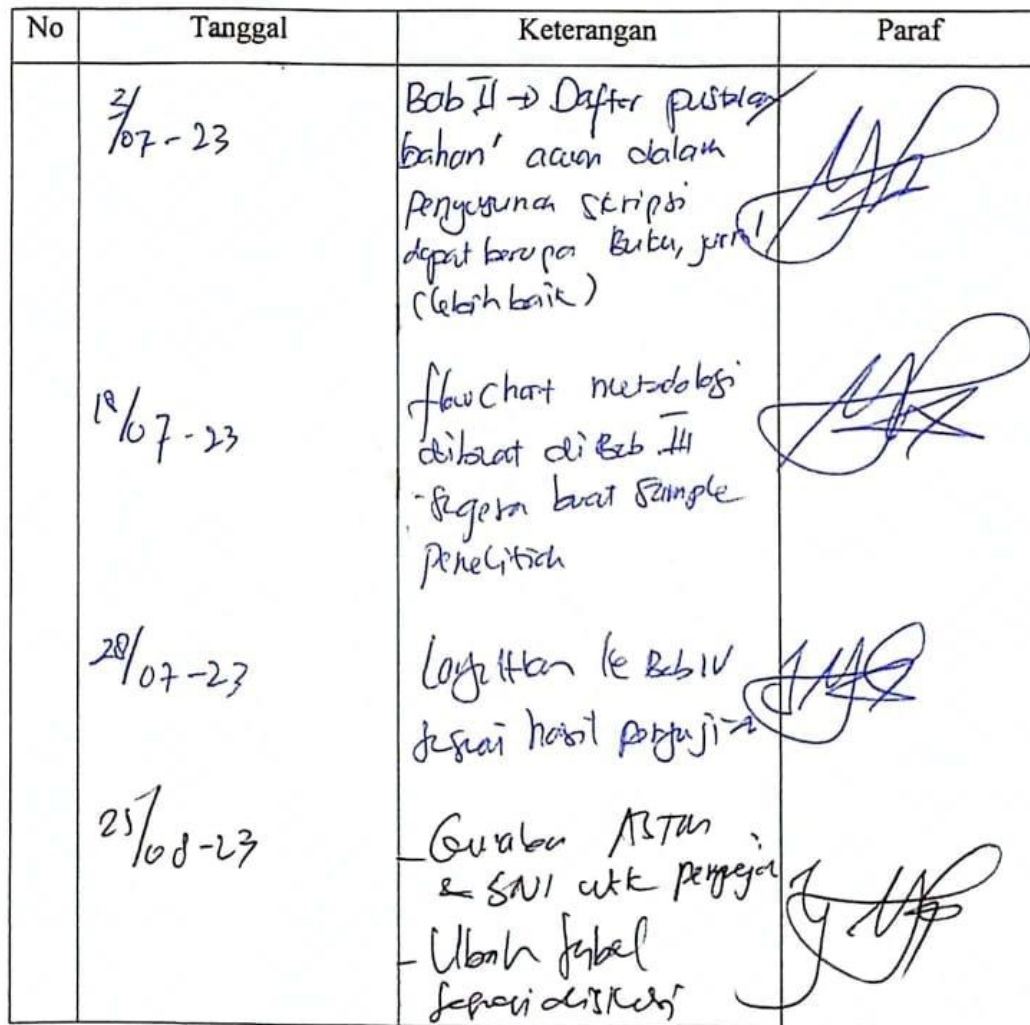 No Tanggal Keterangan Paraf
2/07-23 Bab II → Daftar pustaka
bahan' acuan dalam
penyusunan skripsi
dapat berupa Buku, jurnal
(lebih baik)
19/07-23 flowchart metodologi
dibuat di Bab III
- segera buat sample
penelitian
28/07-23 Lanjutkan ke Bab IV
sesuai hasil pengujian
25/08-23 - Gunakan ASTM
& SNI utk
- Ubah tabel
sesuai diskusi